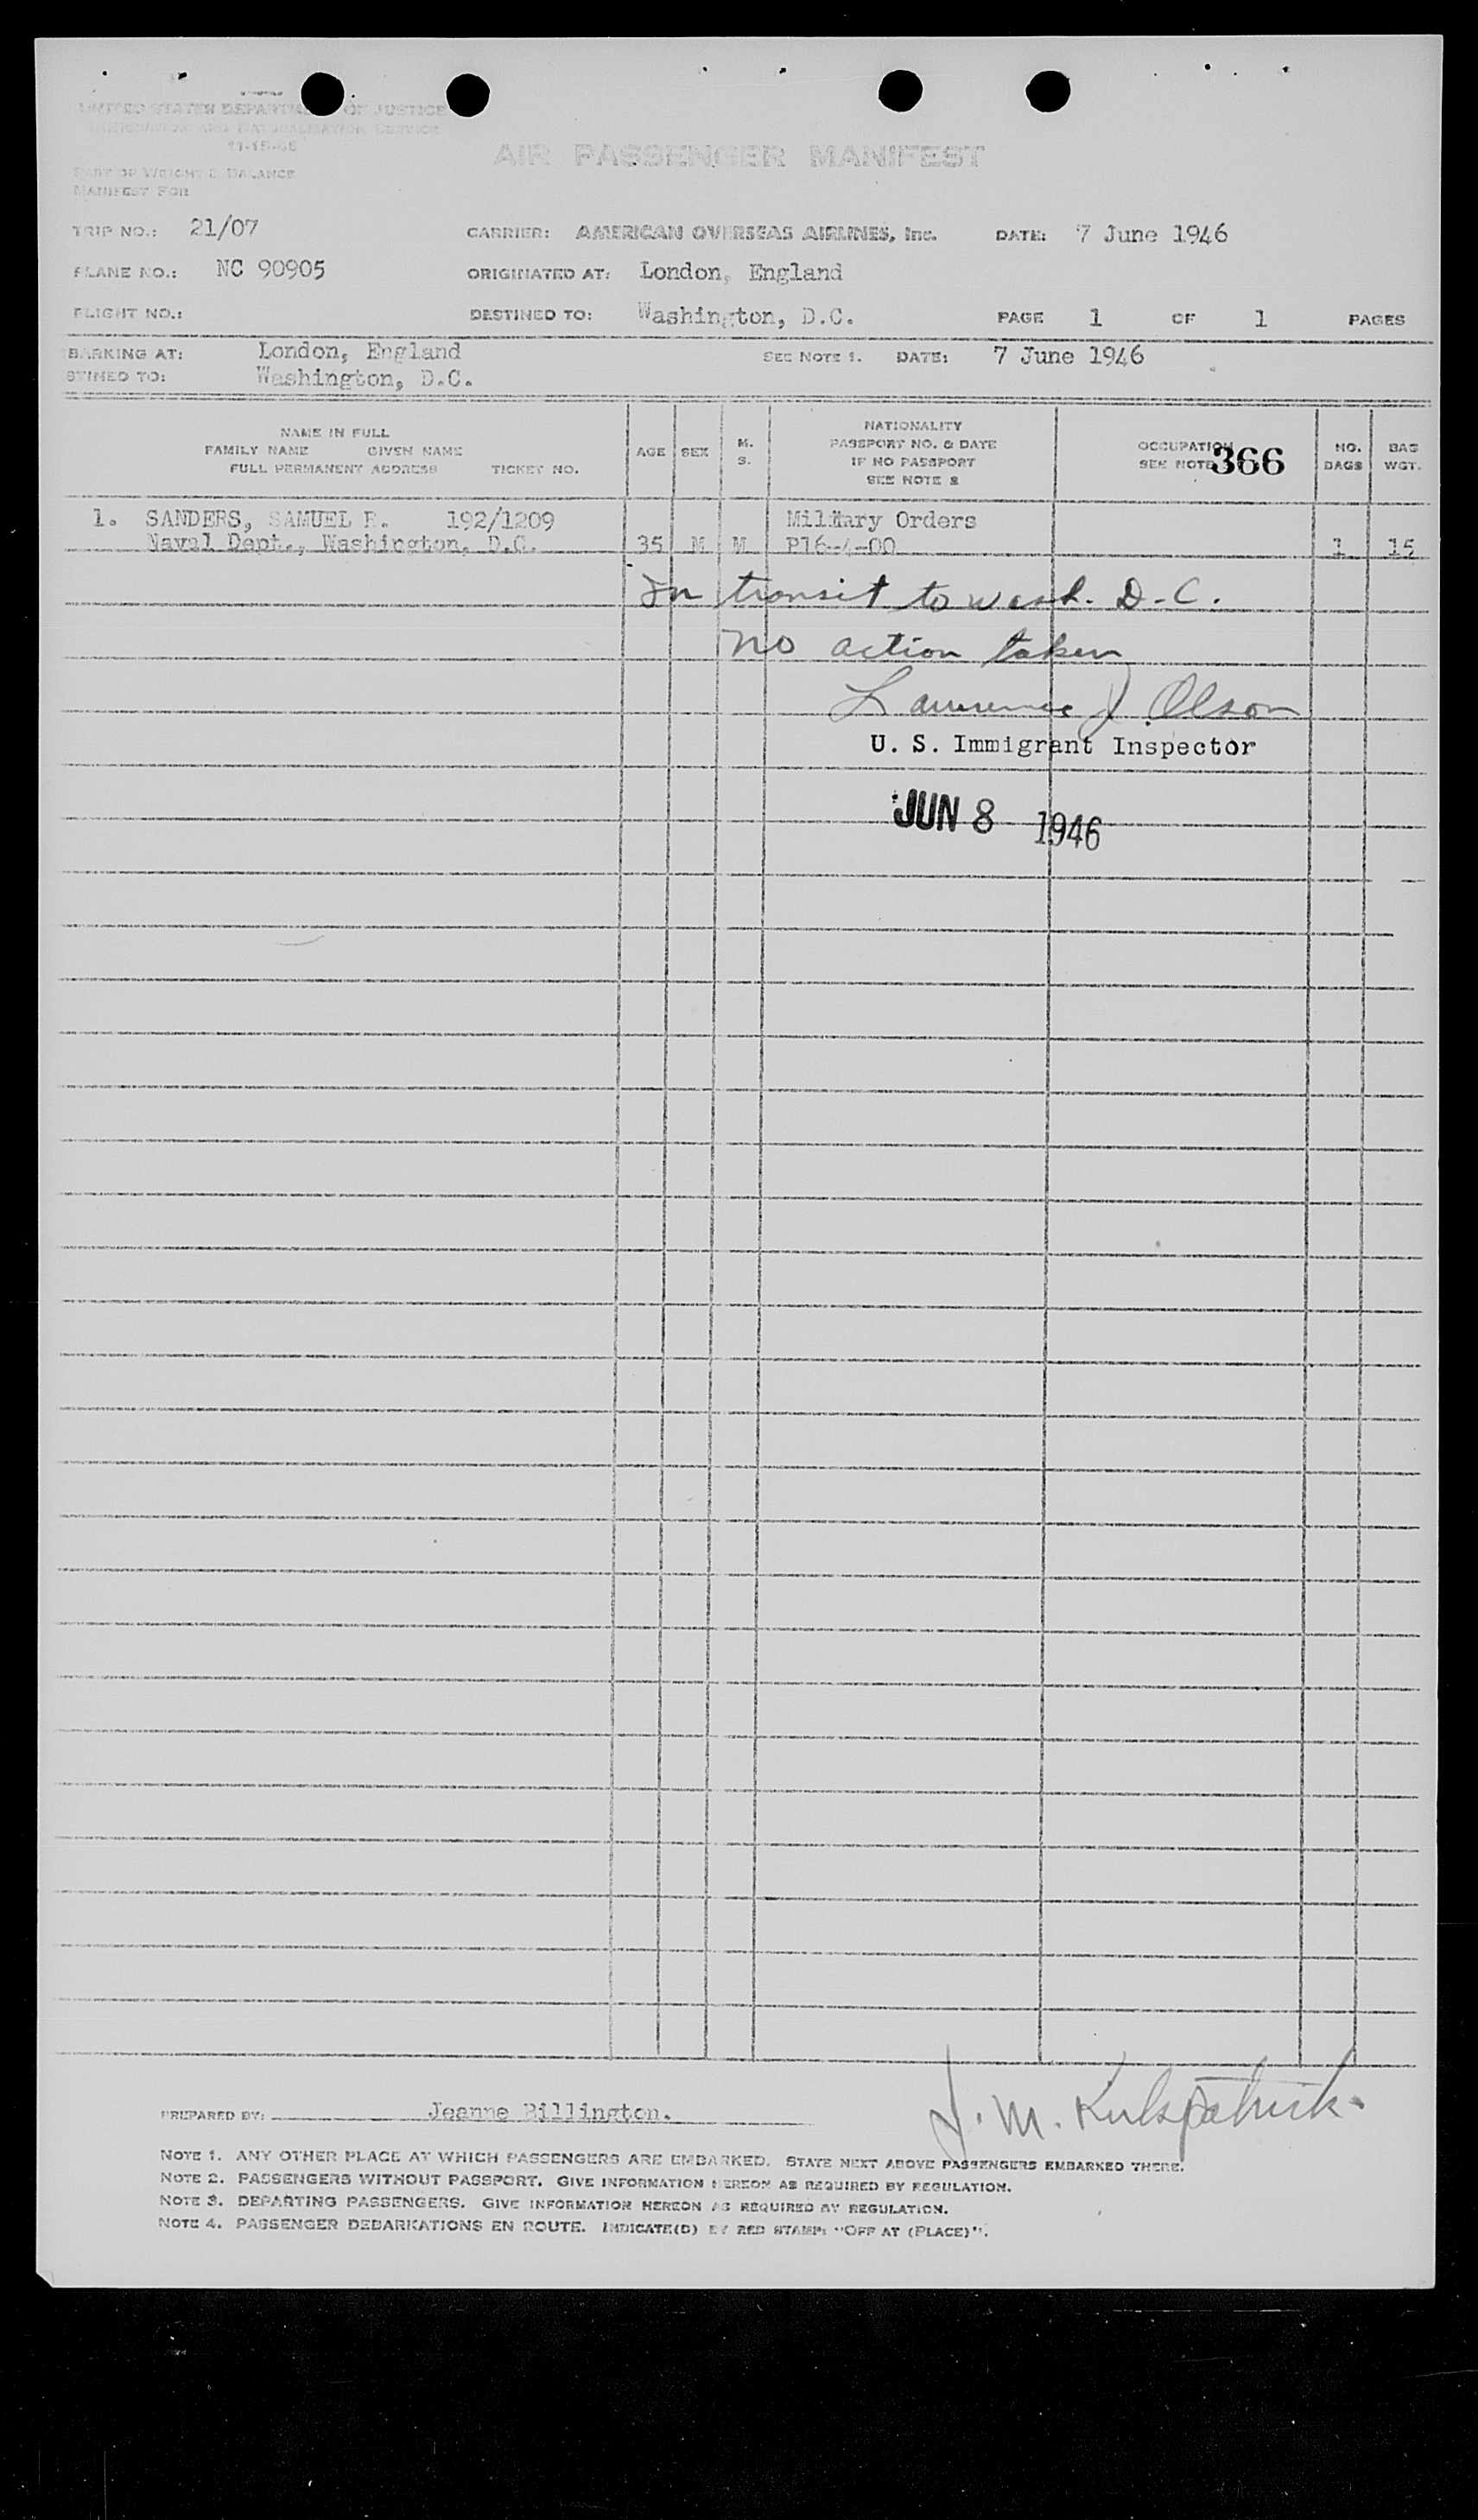 UNITED STATES DEPARTMENT OF JUSTICE
IMMIGRATION AND NATURALIZATION SERVICE
AIR PASSENGER MANIFEST
PART OF WEIGHT & BALANCE
MANIFEST FOR
TRIP NO.: 21/07 CARRIER: AMERICAN OVERSEAS AIRLINES, Inc. DATE: 7 June 1946
PLANE NO.: NC 90905 ORIGINATED AT: London, England
FLIGHT NO.: DESTINED TO: Washington, D.C. PAGE 1 OF 1 PAGES
BARKING AT: London, England SEE NOTE 1. DATE: 7 June 1946
STINED TO: Washington, D.C.
NAME IN FULL
FAMILY NAME GIVEN NAME
FULL PERMANENT ADDRESS TICKET NO.
AGE SEX
M.
S.
NATIONALITY
PASSPORT NO. & DATE
IF NO PASSPORT
SEE NOTE 2
OCCUPATION
SEE NOTE
366
NO.
BAGS
BAG
WGT.
1. SANDERS, SAMUEL 192/1209 Military Orders
Naval Dept., Washington, D.C. 35 M M P16-4-00 1 15
In transit to Wash. D.C.
No action taken
Lawrence J. Olson
U. S. Immigrant Inspector
JUN 8 1946
PREPARED BY: Jeanne Billington.
J. M. Kirkpatrick.
NOTE 1. ANY OTHER PLACE AT WHICH PASSENGERS ARE EMBARKED. STATE NEXT ABOVE PASSENGERS EMBARKED THERE.
NOTE 2. PASSENGERS WITHOUT PASSPORT. GIVE INFORMATION HEREON AS REQUIRED BY REGULATION.
NOTE 3. DEPARTING PASSENGERS. GIVE INFORMATION HEREON AS REQUIRED BY REGULATION.
NOTE 4. PASSENGER DEBARKATIONS EN ROUTE. INDICATE(D) BY RED STAMP: "OFF AT (PLACE)".